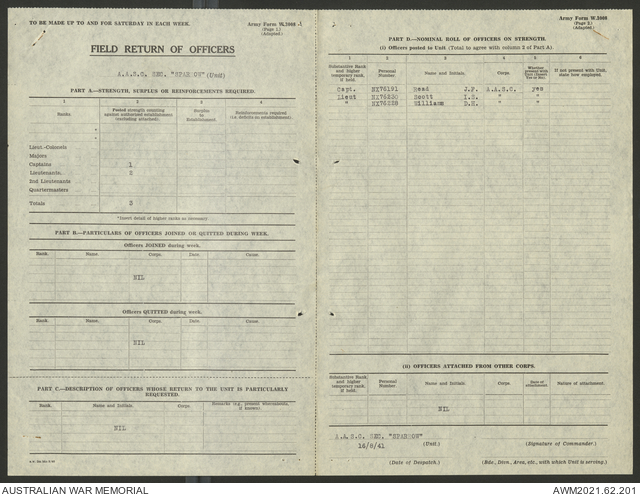 TO BE MADE UP TO AND FOR SATURDAY IN EACH WEEK.
Army Form W.3008
(Page 1.)
(Adapted.)
FIELD RETURN OF OFFICERS
A.A.S.C. SEC. "SPARROW" (Unit)
PART A.—STRENGTH, SURPLUS OR REINFORCEMENTS REQUIRED.
1 2 3 4
Ranks. Posted strength counting against authorised establishments (excluding attached). Surplus to Establishment. Reinforcements required (i.e. deficits on establishment).
*
*
Lieut.-Colonels
Majors
Captains 1
Lieutenants.. 2
2nd Lieutenants
Quartermasters
Totals 3
*Insert detail of higher ranks as necessary
PART B.—PARTICULARS OF OFFICERS JOINED OR QUITTED DURING WEEK.
Officers JOINED during week.
Rank. Name. Corps. Date. Unit.
NIL
Officers QUITTED during week.
Rank. Name. Corps. Date. Unit.
NIL
PART C.—DESCRIPTION OF OFFICERS WHOSE RETURN TO THE UNIT IS PARTICULARLY
REQUESTED.
Rank. Name and Initials. Corps. Remarks (e.g., present whereabouts, if known).
NIL
Army Form W.3008
(Page 2.)
(Adapted.)
PART D.—NOMINAL ROLL OF OFFICERS ON STRENGTH.
(i) Officers posted to Unit (Total to agree with column 2 of Part A).
2 3 4 5 6
Substantive Rank and higher temporary rank, if held. Personal Number. Name and Initials. Corps. Whether present with Unit (insert Yes or No) If not present with Unit, state how employed.
Capt. NX76191 Read J.F. A.A.S.C. yes
Lieut NX76230 Scott I.S. " "
" NX76228 Williams D.H. " "
(ii) OFFICERS ATTACHED FROM OTHER CORPS.
Substantive Rank and higher temporary rank, if held. Personal Number. Name and Initials. Corps. Date of attachment. Nature of attachment.
NIL
A.A.S.C. SEC. "SPARROW"
(Unit.) (Signature of Commander.)
16/8/41
(Date of Despatch.) (Bde., Divn., Area, etc., with which Unit is serving.)
AUSTRALIAN WAR MEMORIAL AWM2021.62.201